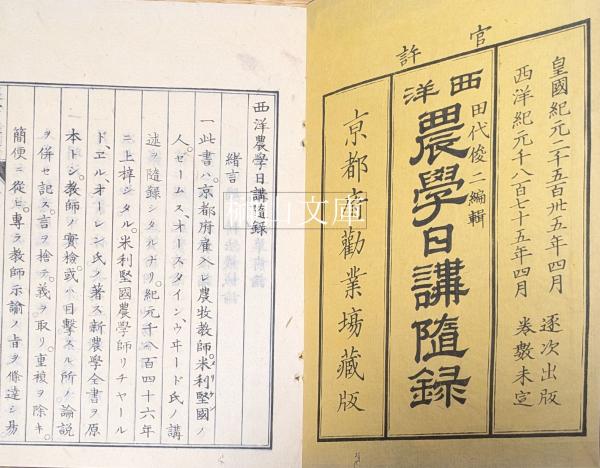 官許
皇國紀元二千五百卅五年四月
西洋紀元千八百七十五年四月
逐次出版
巻數未定
西洋
田代俊二編輯
農學日講隨録
京都府勸業場藏版
西洋農學日講隨録
緒言
一此書ハ京都府雇入レ農牧教師米利堅國ノ
メリケン
人ゼームス、オースタイン、ウヰード氏ノ講
述ヲ隨録シタルナリ。紀元千八百四十六年
ニ上梓シタル。米利堅國農學師リチヤール
ド、ヱル、オーレン氏ノ著ス新農學全書ヲ原
本トシ。教師ノ實檢或ハ目撃スル所ノ論説
ヲ併セ記ス。言ヲ捨テ。義ヲ取リ。重複ヲ除キ。
簡便ニ從ヒ。專ラ教師示諭ノ旨ヲ條達シ易